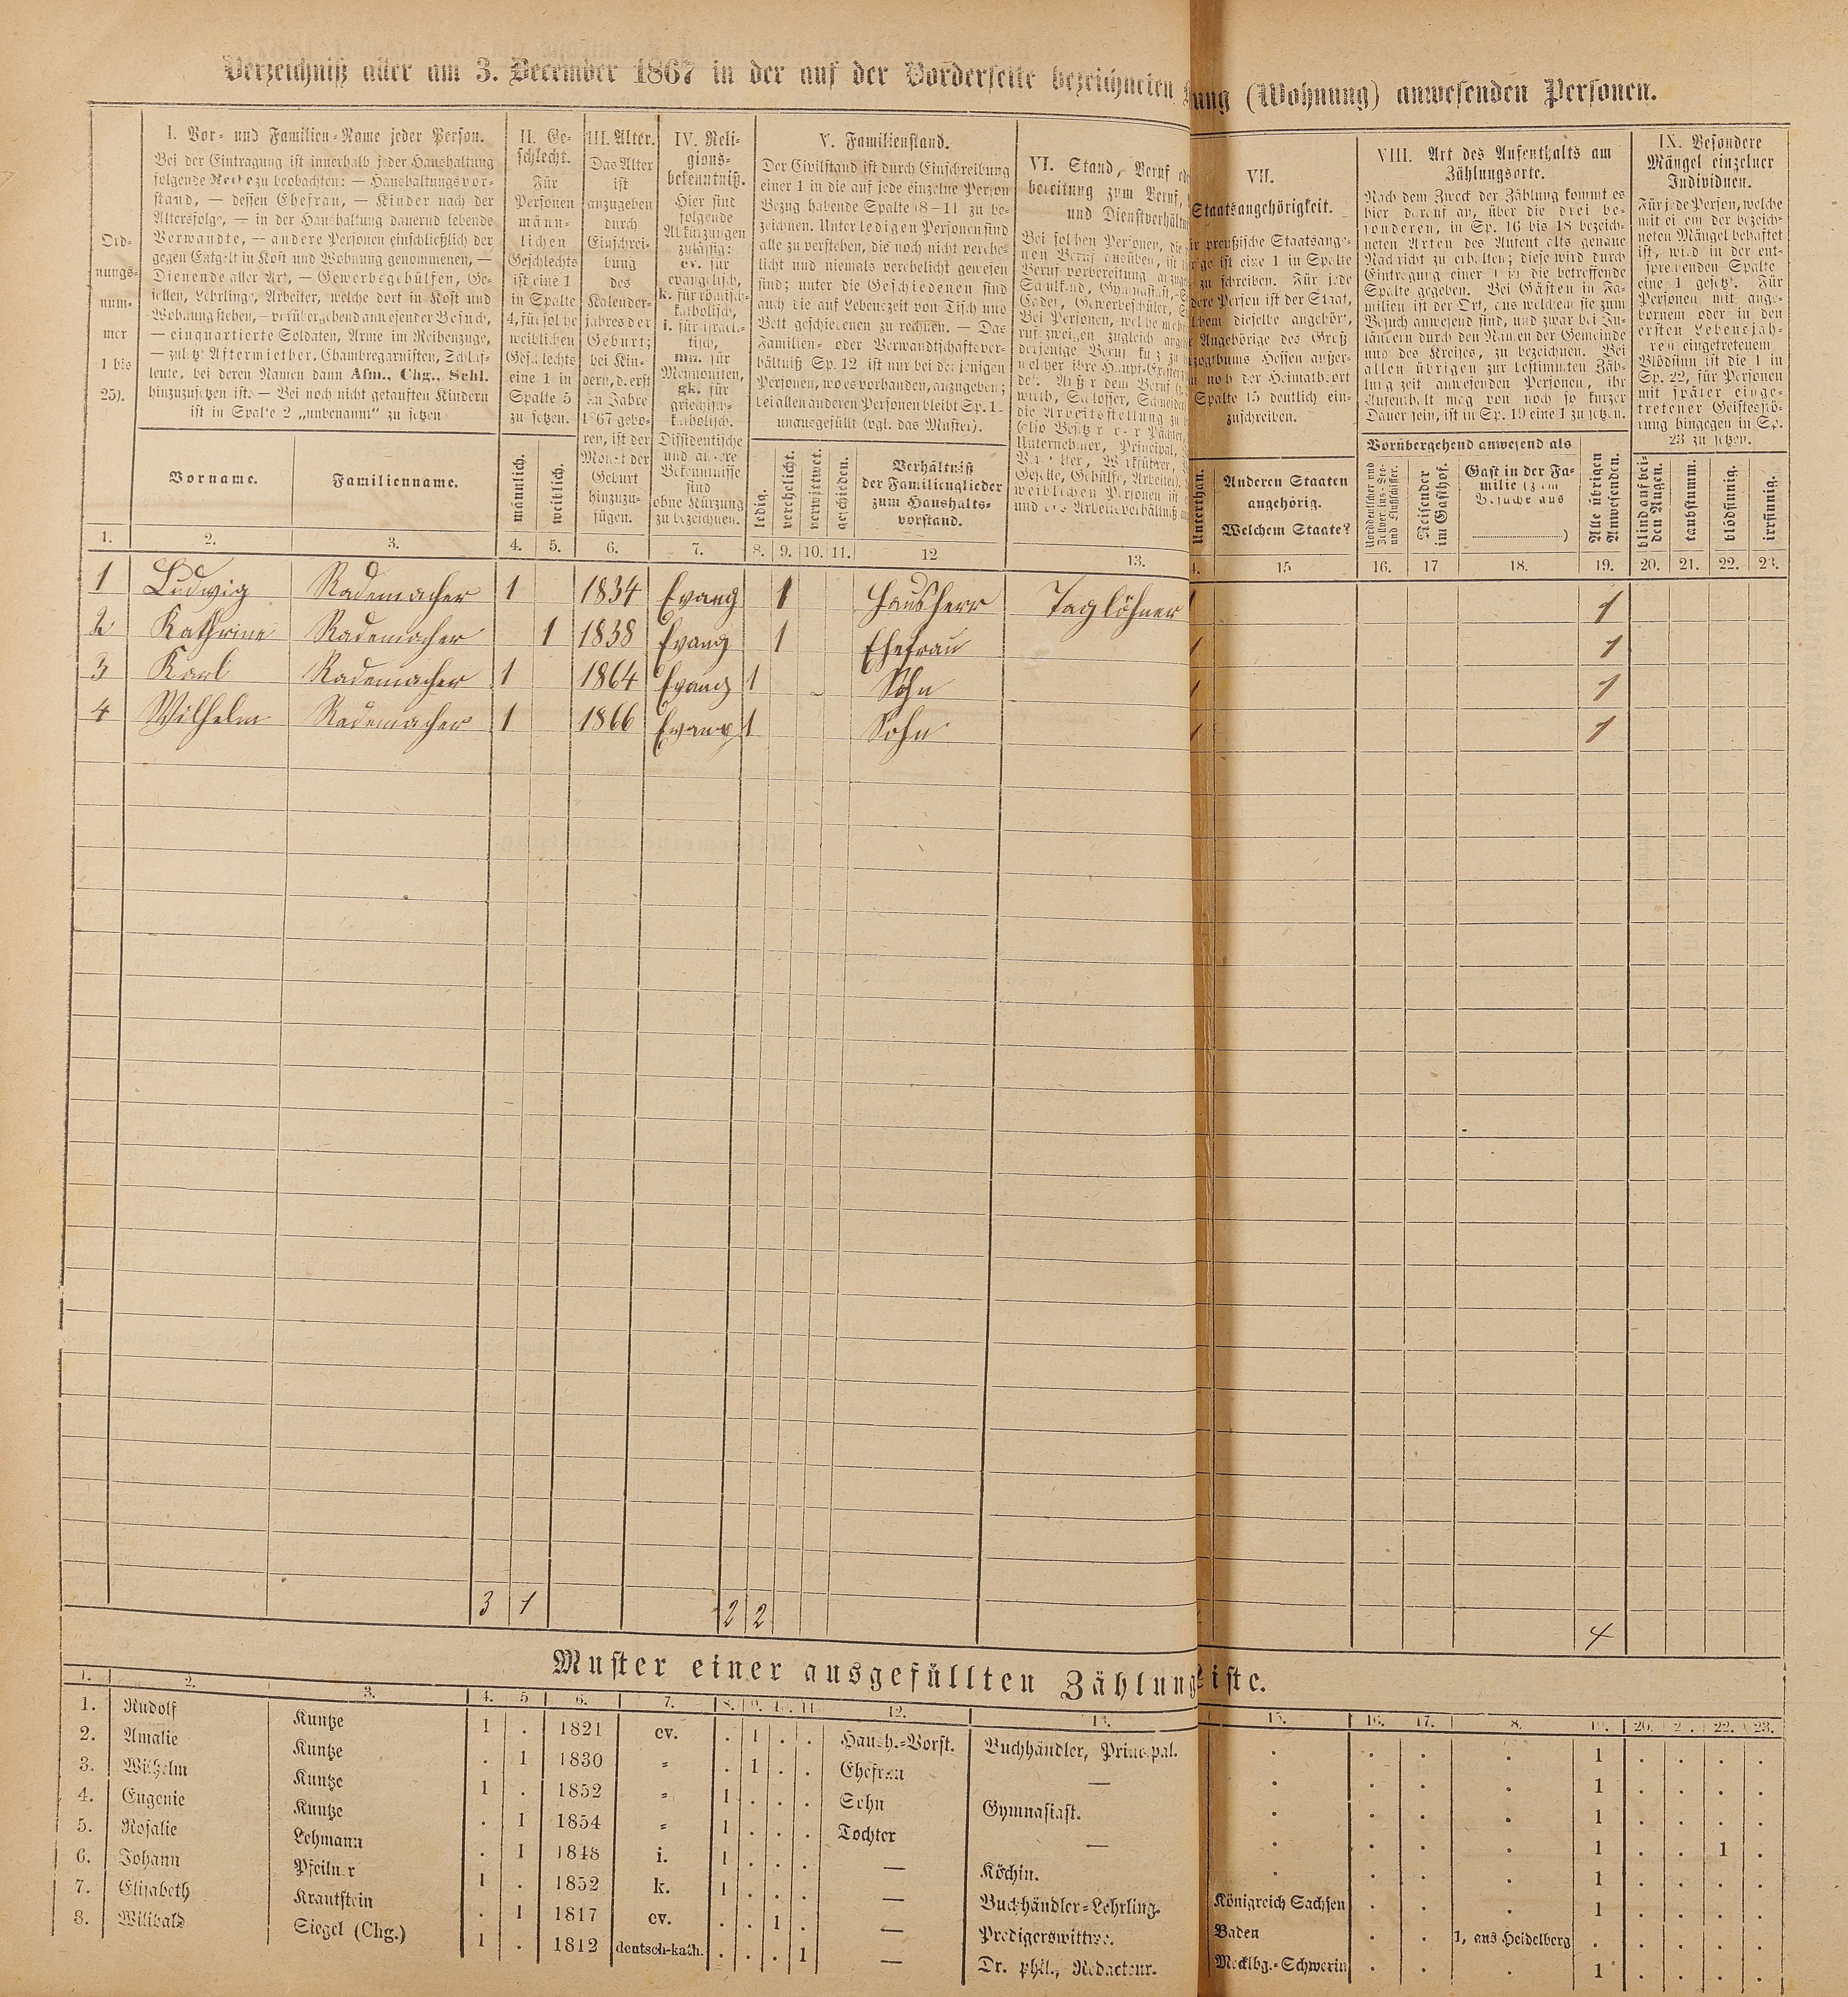 Verzeichniß aller am 3. December 1867 in der auf der Vorderseite bezeichneten ung (Wohnung) anwesenden Personen.
Ord-
nungs-
num-
mer
1 bis
25).
I. Vor- und Familien-Name jeder Person.
Bei der Eintragung ist innerhalb jeder Haushaltung
folgende Reihe zu beobachten: — Haushaltungsvor-
stand, — dessen Ehefrau, — Kinder nach der
Altersfolge, — in der Haushaltung dauernd lebende
Verwandte, — andere Personen einschließlich der
gegen Entgelt in Kost und Wohnung genommenen, —
Dienende aller Art, — Gewerbsgehülfen, Ge-
sellen, Lehrlinge, Arbeiter, welche dort in Kost und
Wohnung stehen, — vorübergehend anwesender Besuch,
— einquartierte Soldaten, Arme im Reihenzuge,
— zuletzt Aftermiether, Chambregarnisten, Schlaf-
leute, bei deren Namen dann Afm., Chg., Schl.
hinzuzusetzen ist. — Bei noch nicht getauften Kindern
ist in Spalte 2 „unbenannt“ zu setzen
Vorname.
Familienname.
II. Ge-
schlecht.
Für
Personen
männ-
lichen
Geschlechts
ist eine 1
in Spalte
4, für solche
weiblichen
Geschlechts
eine 1 in
Spalte 5
zu setzen.
männlich.
weiblich.
III. Alter.
Das Alter
ist
anzugeben
durch
Einschrei-
bung
des
Kalender-
jahres der
Geburt;
bei Kin-
dern, d. erst
im Jahre
1867 gebo-
ren, ist der
Monat der
Geburt
hinzuzu-
fügen.
IV. Reli-
gions-
bekenntniß.
Hier sind
folgende
Abkürzungen
zulässig:
ev. für
evangelisch,
k. für römisch-
katholisch,
i. für israeli-
tisch,
mn. für
Mennoniten,
gk. für
griechisch-
katholisch.
Dissidentische
und andere
Bekenntnisse
sind
ohne Kürzung
zu bezeichnen.
V. Familienstand.
Der Civilstand ist durch Einschreibung
einer 1 in die auf jede einzelne Person
Bezug habende Spalte (8–11) zu be-
zeichnen. Unter ledigen Personen sind
alle zu verstehen, die noch nicht verehe-
licht und niemals verehelicht gewesen
sind; unter die Geschiedenen sind
auch die auf Lebenszeit von Tisch und
Bett geschiedenen zu rechnen. — Das
Familien- oder Verwandtschaftsver-
hältniß Sp. 12 ist nur bei denjenigen
Personen, wo es vorhanden, anzugeben;
bei allen anderen Personen bleibt Sp. 1
unausgefüllt (vgl. das Muster).
ledig.
verehelicht.
verwittwet.
geschieden.
Verhältniß
der Familienglieder
zum Haushalts-
vorstand.
VI. Stand, Beruf
bereitung zum Beruf,
und Dienstverhältn
VII.
Staatsangehörigkeit.
preußische Staatsange-
ist eine 1 in Spalte
zu schreiben. Für jede
Person ist der Staat,
dieselbe angehört,
Angehörige des Groß
Hessen außer-
noch der Heimathsort
Spalte 15 deutlich ein-
zuschreiben.
Unterthan.
Anderen Staaten
angehörig.
Welchem Staate?
VIII. Art des Aufenthalts am
Zählungsorte.
Nach dem Zweck der Zählung kommt es
hier darauf an, über die drei be-
sonderen, in Sp. 16 bis 18 bezeich-
neten Arten des Aufenthalts genaue
Nachricht zu erhalten; diese wird durch
Eintragung einer 1 in die betreffende
Spalte gegeben. Bei Gästen in Fa-
milien ist der Ort, aus welchem sie zum
Besuch anwesend sind, und zwar bei In-
ländern durch den Namen der Gemeinde
und des Kreises, zu bezeichnen. Bei
allen übrigen zur bestimmten Zäh-
lungszeit anwesenden Personen, ihr
Aufenthalt mag von noch so kurzer
Dauer sein, ist in Sp. 19 eine 1 zu setzen.
Vorübergehend anwesend als
Norddeutscher und
Zollvereins-See-
und Flußschiffer.
Reisender
im Gasthof.
Gast in der Fa-
milie (zum
Besuche aus
)
Alle übrigen
Anwesenden.
IX. Besondere
Mängel einzelner
Individuen.
Für jede Person, welche
mit einem der bezeich-
neten Mängel behaftet
ist, wird in der ent-
sprechenden Spalte
eine 1 gesetzt. Für
Personen mit ange-
bornem oder in den
ersten Lebensjah-
ren eingetretenem
Blödsinn ist die 1 in
Sp. 22, für Personen
mit später einge-
tretener Geistesstö-
rung hingegen in Sp.
23 zu setzen.
blind auf bei-
den Augen.
taubstumm.
blödsinnig.
irrsinnig.
1. 2. 3. 4. 5. 6. 7. 8. 9. 10. 11. 12 13. 15 16. 17 18. 19. 20. 21. 22. 23.
1 Ludwig Rademacher 1 1834 Evang 1 Hausherr Taglöhner 1 1
2 Kathrine Rademacher 1 1838 Evang 1 Ehefrau 1 1
3 Karl Rademacher 1 1864 Evang 1 Sohn 1 1
4 Wilhelm Rademacher 1 1866 Evang 1 Sohn 1 1
3 1 2 2 4
Muster einer ausgefüllten Zählungsliste.
1. 2. 3. 4. 5 6. 7. 8. 9. 10. 11 12. 13. 15. 16. 17. 8. 19. 20. 2. 22. 23.
1. Rudolf Kuntze 1 . 1821 ev. . 1 . . Haush.=Vorst. Buchhändler, Principal. . . . . 1 . . . .
2. Amalie Kuntze . 1 1830 = . 1 . . Ehefrau — . . . . 1 . . . .
3. Wilhelm Kuntze 1 . 1852 = 1 . . . Sohn Gymnasiast. . . . . 1 . . . .
4. Eugenie Kuntze . 1 1854 = 1 . . . Tochter — . . . . 1 . . 1 .
5. Rosalie Lehmann . 1 1848 i. 1 . . . — Köchin. . . . . 1 . . . .
6. Johann Pfeilner 1 . 1852 k. 1 . . . — Buchhändler=Lehrling. Königreich Sachsen . . . 1 . . . .
7. Elisabeth Krautstein . 1 1817 ev. . . 1 . — Predigerswittwe. Baden . . 1, aus Heidelberg . . . . .
8. Wilibald Siegel (Chg.) 1 . 1812 deutsch-kath. . . . 1 — Dr. phil., Redacteur. Mecklbg.=Schwerin . . . 1 . . . .